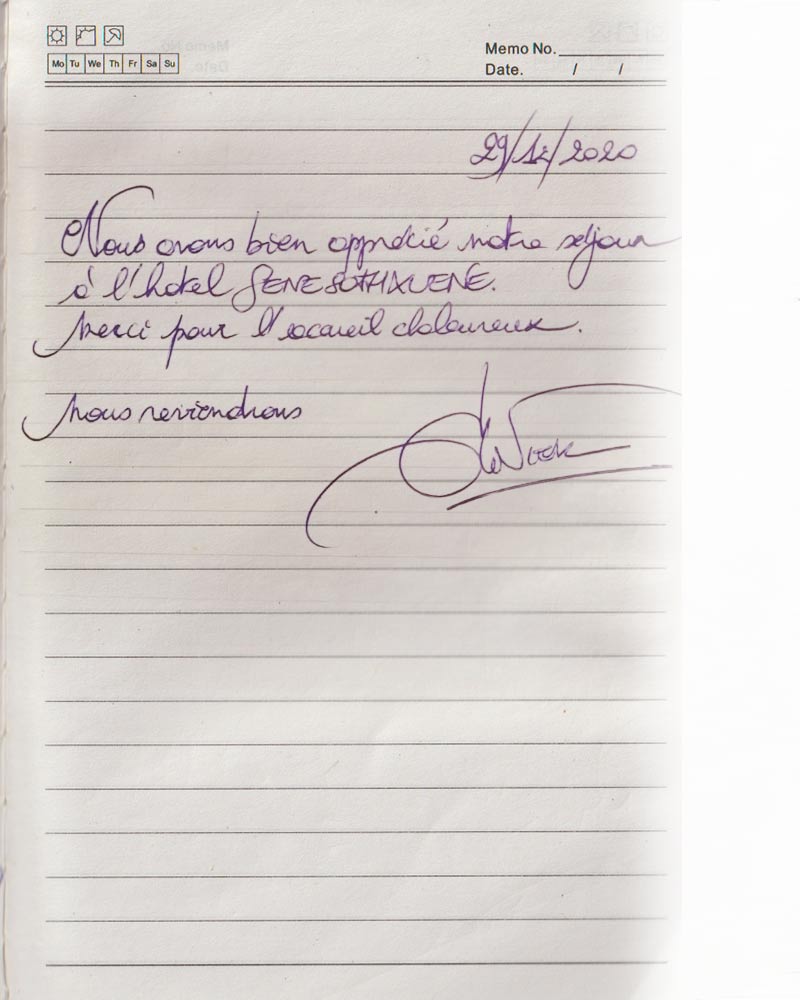 Memo No.
Mo Tu We Th Fr Sa Su
Date. / /
29/12/2020
Nous avons bien apprécié notre séjour
à l'hotel SENESOTHXUENE.
Merci pour l'accueil chaleureux.
Nous reviendrons